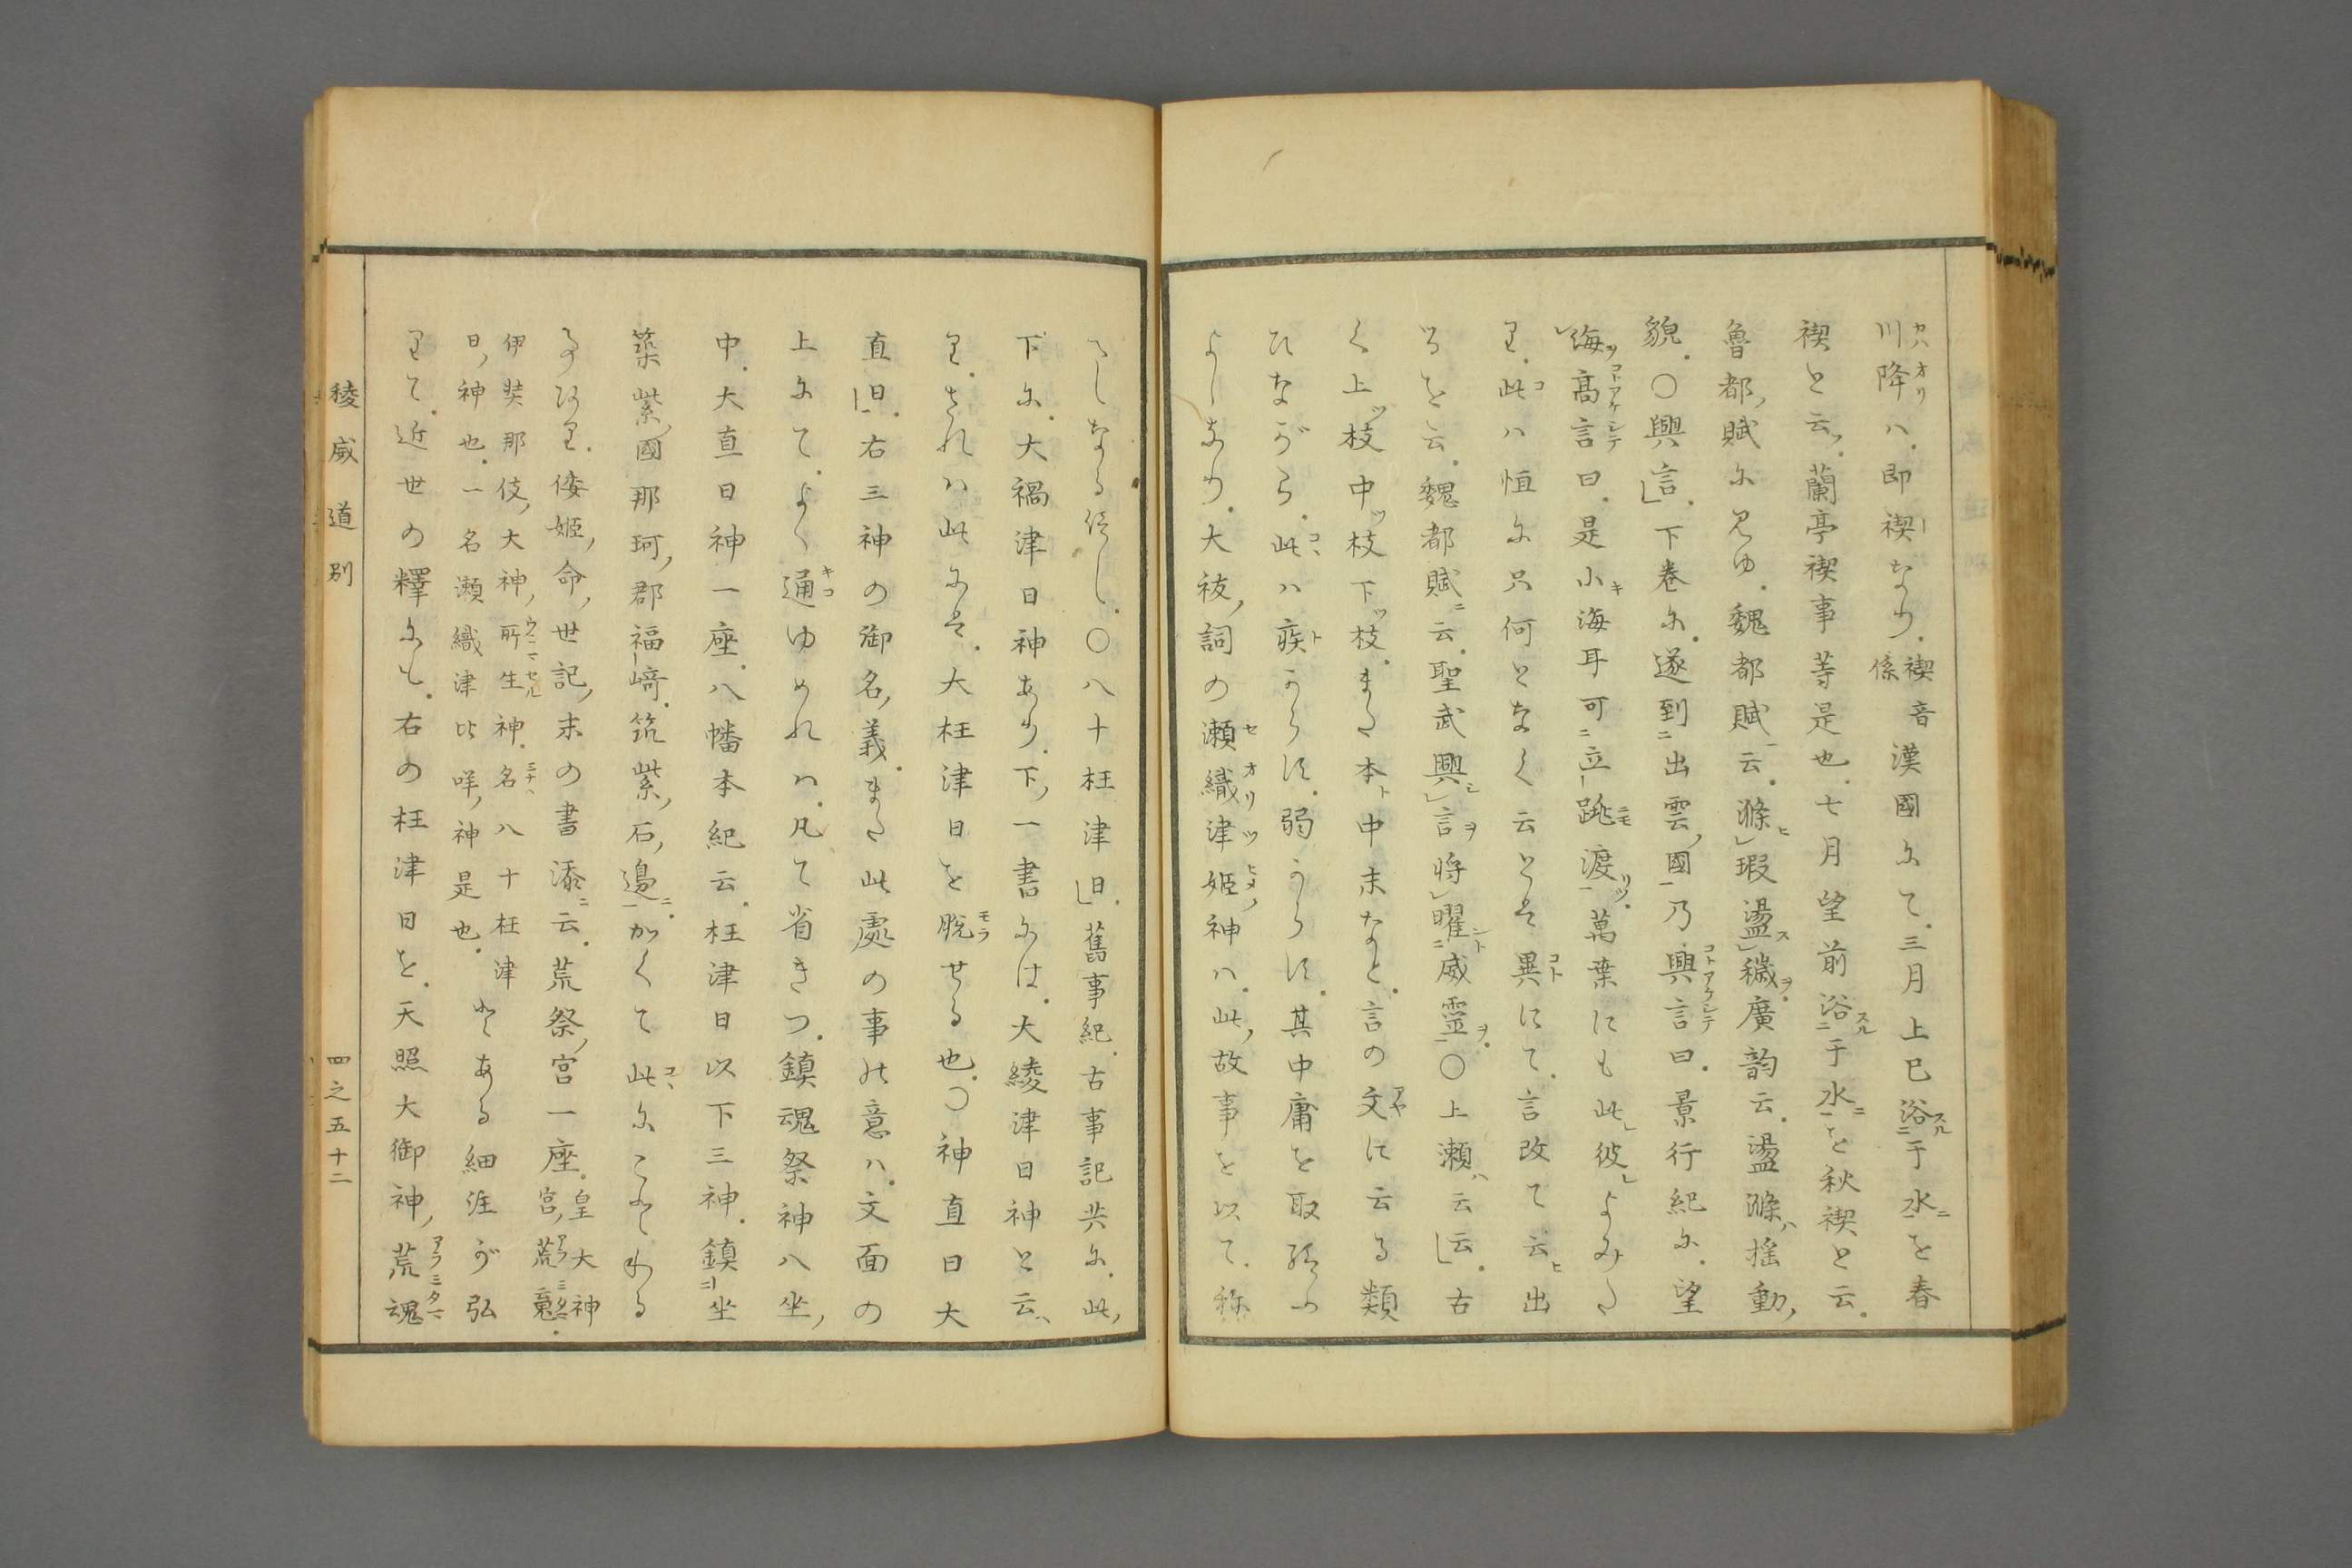 川降ハ。即禊なり。禊音係漢國にて。三月上巳浴于水を春
禊と云。蘭亭禊事等是也。七月望前浴于水を秋禊と云。
魯都賦に見ゆ。魏都賦云。滌瑕盪穢廣韵云。盪滌ハ搖動
貌。〇興言。下卷に。遂到出雲國乃興言曰。景行紀に。望
海高言曰。是小海耳可立跳渡。萬葉にも此彼よみた
り。此ハ恒に只何となく云とは異にて。言改て云出
るを云。魏都賦云。聖武興言将曜威靈〇上瀬云云。古
く上ッ枝中ッ枝下ッ枝。また本中末など。言の文に云る類
ひながら。此ハ疾からず。弱からず。其中庸を取給ふ
よしあり。大祓詞の瀬織津姫神ハ。此故事を以て。称
へしなるべし。〇八十枉津日。舊事紀。古事記共に。此
下に。大禍津日神あり。下一書には。大綾津日神と云。
り。されハ此にも。大枉津日を脱せる也。〇神直日大
直日。右三神の御名義。また此處の事の意ハ。文面の
上にて。よく通ゆめれハ。凡て省きつ。鎮魂祭神八坐
中。大直日神一座。八幡本紀云。枉津日以下三神。鎮坐
築紫國那珂郡福﨑。筑紫石邊。かくて此に
あり。倭姫命世記末の書添云。荒祭宮一座。皇大神宮荒魂。
伊弉那伎大神所生神。名八十枉津
日神也。一名瀬織津比咩神是也。とある細注が弘
りて。近世の釋にも。右の枉津日を。天照大御神荒魂
稜威道別 四之五十二